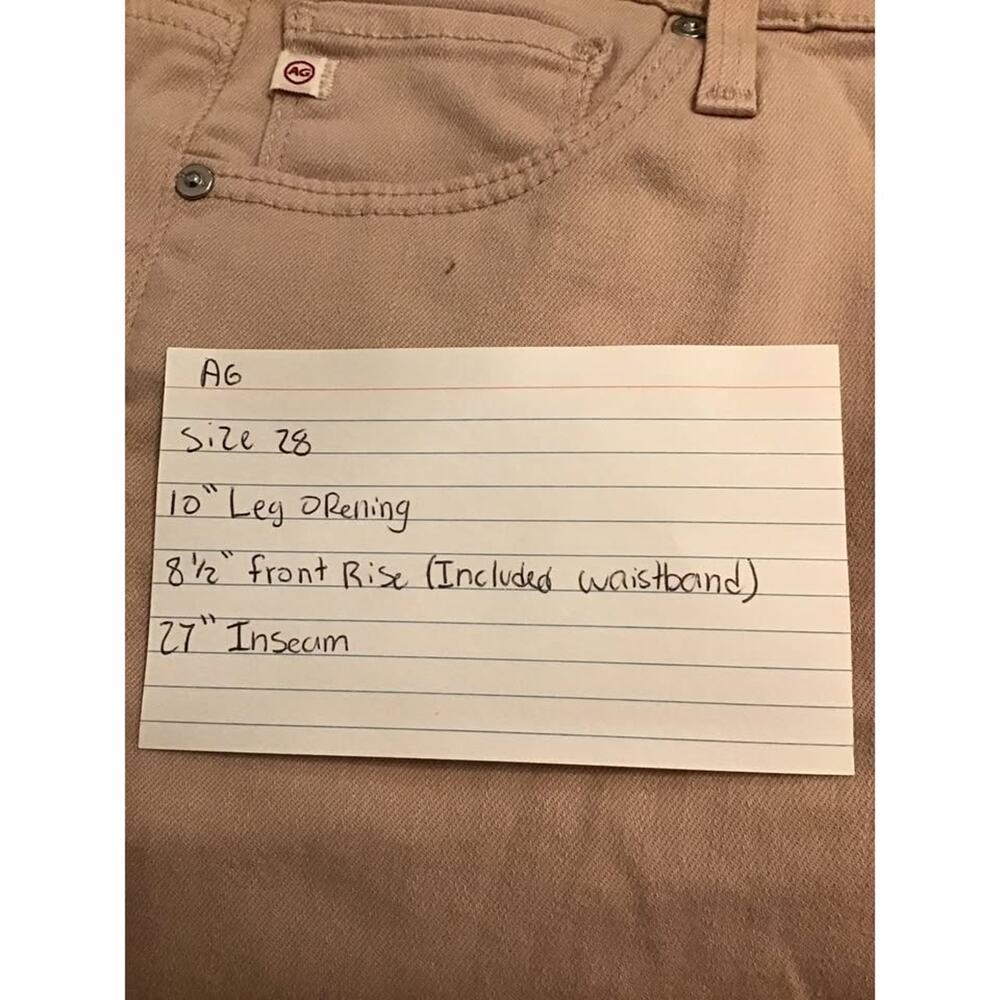 AG
AG
Size 28
10" Leg Opening
8 1/2" front Rise (Included waistband)
27" Inseam